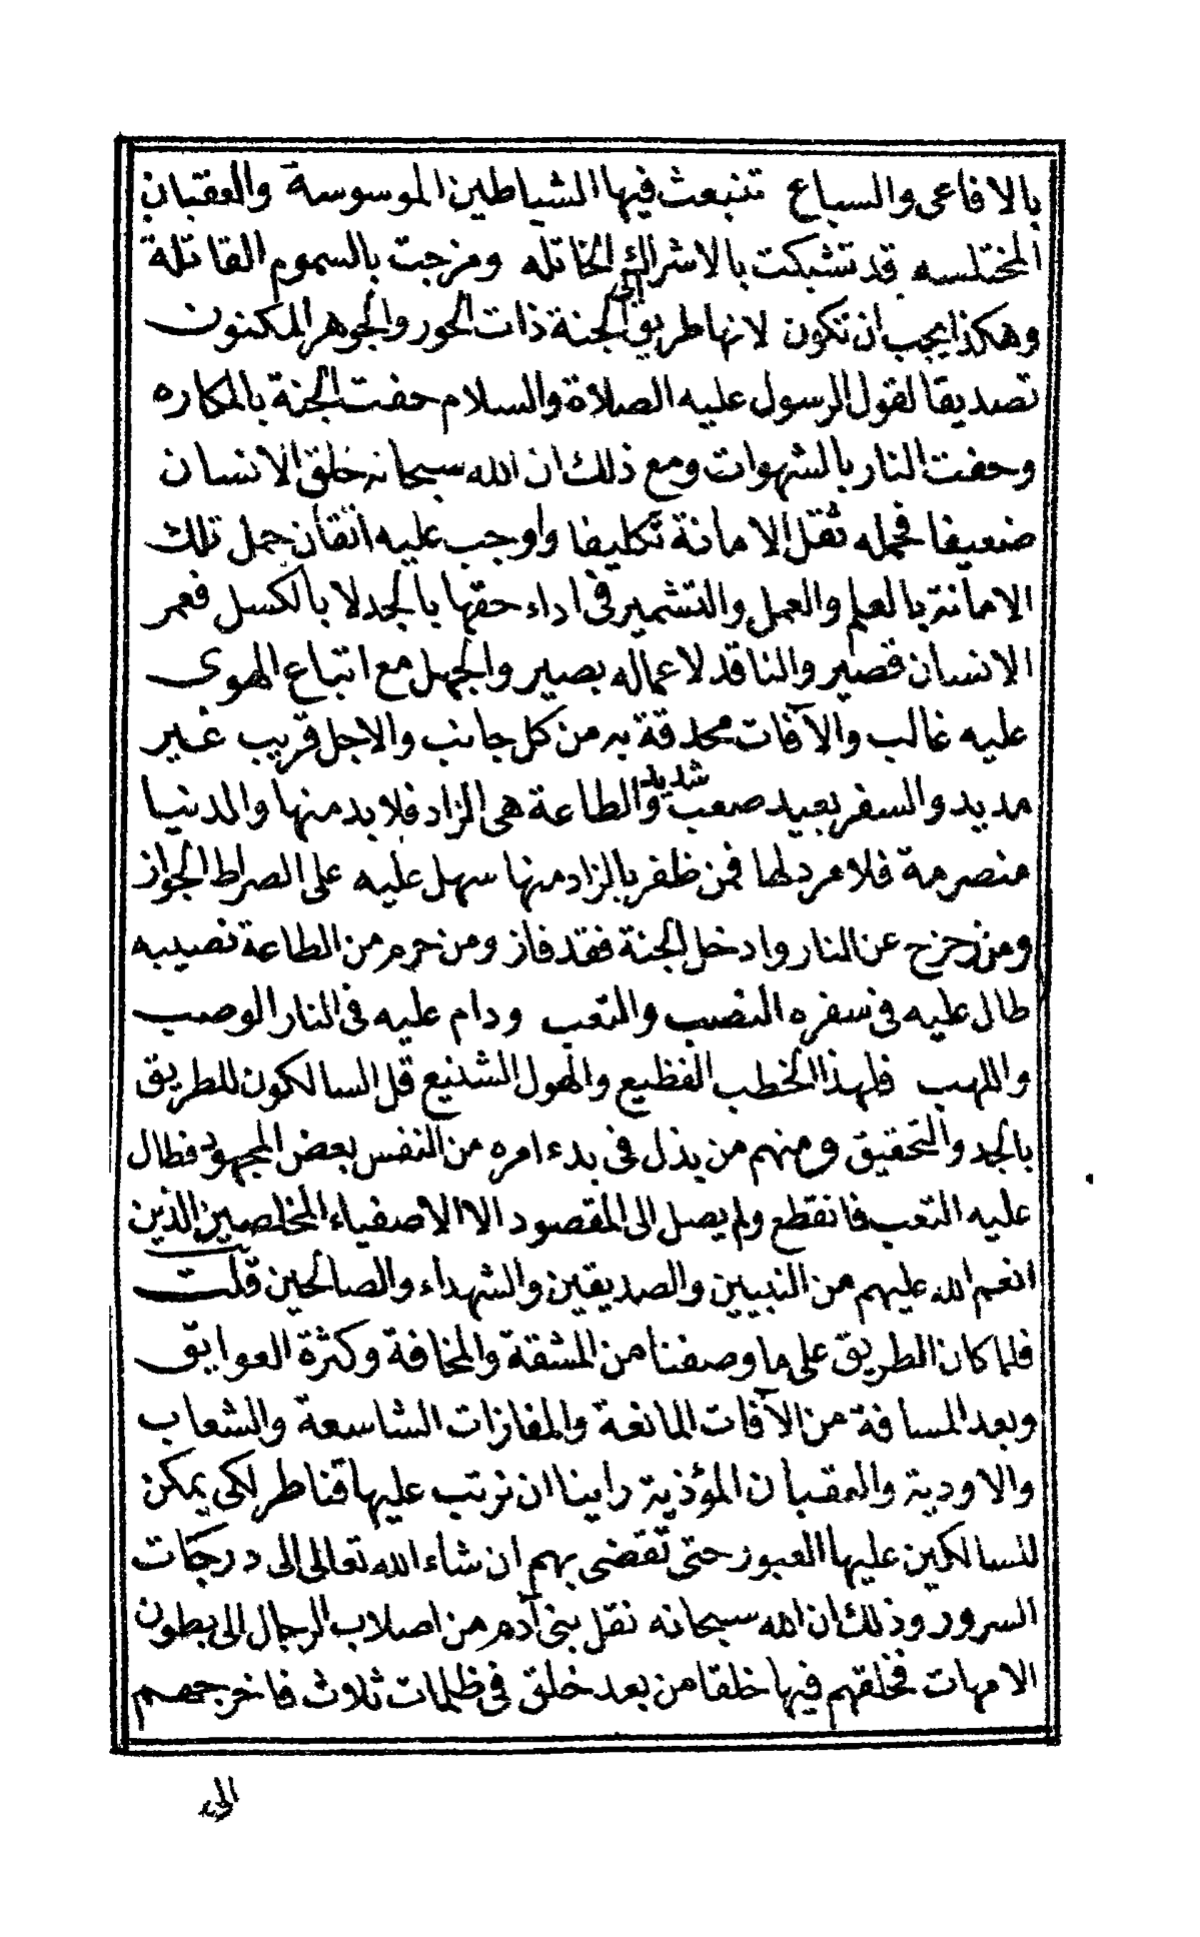 بالافاعى والسباع تنبعث فيها الشياطين الموسوسة والعقبان
المختلسه قد تشبكت بالاشراك الخاتله ومزجت بالسموم القاتلة
وهكذا يجب ان تكون لانها طريق الى الجنة ذات الحور والجوهر المكنون
تصديقا لقول الرسول عليه الصلاة والسلام حفت الجنة بالمكاره
وحفت النار بالشهوات ومع ذلك ان الله سبحانه خلق الانسان
ضعيفا فحمله ثقل الامانة تكليفا واوجب عليه اتقان حمل تلك
الامانة بالعلم والعمل والتشمير فى اداء حقها بالجد لا بالكسل فعمر
الانسان قصير والناقد لاعماله بصير والجهل مع اتباع الهوى
عليه غالب والآفات محدقة به من كل جانب والاجل قريب غير
مديد والسفر بعيد صعب شديد والطاعة هى الزاد فلا بد منها والدنيا
منصرمة فلا مرد لها فمن ظفر بالزاد منها سهل عليه على الصراط الجواز
ومن زحزح عن النار وادخل الجنة فقد فاز ومن حرم من الطاعة نصيبه
طال عليه فى سفره النصب والتعب ودام عليه فى النار الوصب
واللهب فلهذا الخطب الفظيع والهول الشنيع قل السالكون للطريق
بالجد والتحقيق ومنهم من يذل فى بدء امره من النفس بعض المجهود فطال
عليه التعب فانقطع ولم يصل الى المقصود الا الاصفياء المخلصين الذين
انعم الله عليهم من النبيين والصديقين والشهداء والصالحين قلت
فلما كان الطريق على ما وصفنا من المشقة والمخافة وكثرة العوايق
وبعد المسافة من الآفات المانعة والمفازات الشاسعة والشعاب
والاودية والعقبان المؤذية راينا ان نرتب عليها قناطر لكى يمكن
للسالكين عليها العبور حتى تفضى بهم ان شاء الله تعالى الى درجات
السرور وذلك ان الله سبحانه نقل بنى آدم من اصلاب الرجال الى بطون
الامهات فخلقهم فيها خلقا من بعد خلق فى ظلمات ثلاث فاخرجهم
الى